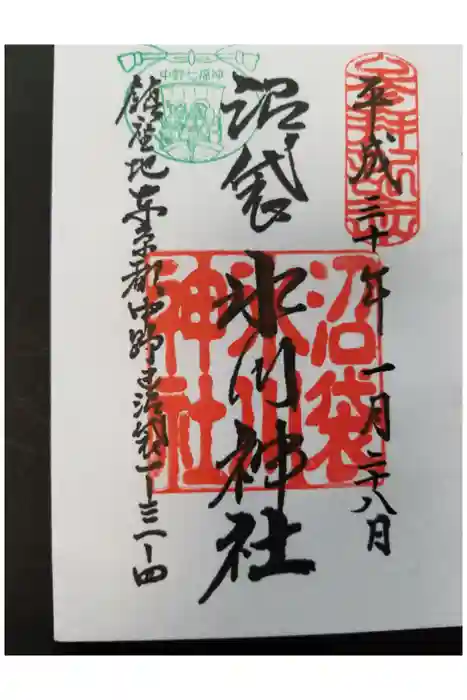 平成三十年一月二十八日
沼袋氷川神社
沼袋氷川神社
鎮座地東京都中野区沼袋一ー三一ー四